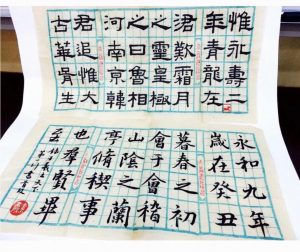 惟永壽二
年青龍在
涒歎霜月
之靈皇極
之日魯相
河南京韓
君追惟大
古華胥生
永和九年
歲在癸丑
暮春之初
會于會稽
山陰之蘭
亭脩稧事
也羣賢畢
至